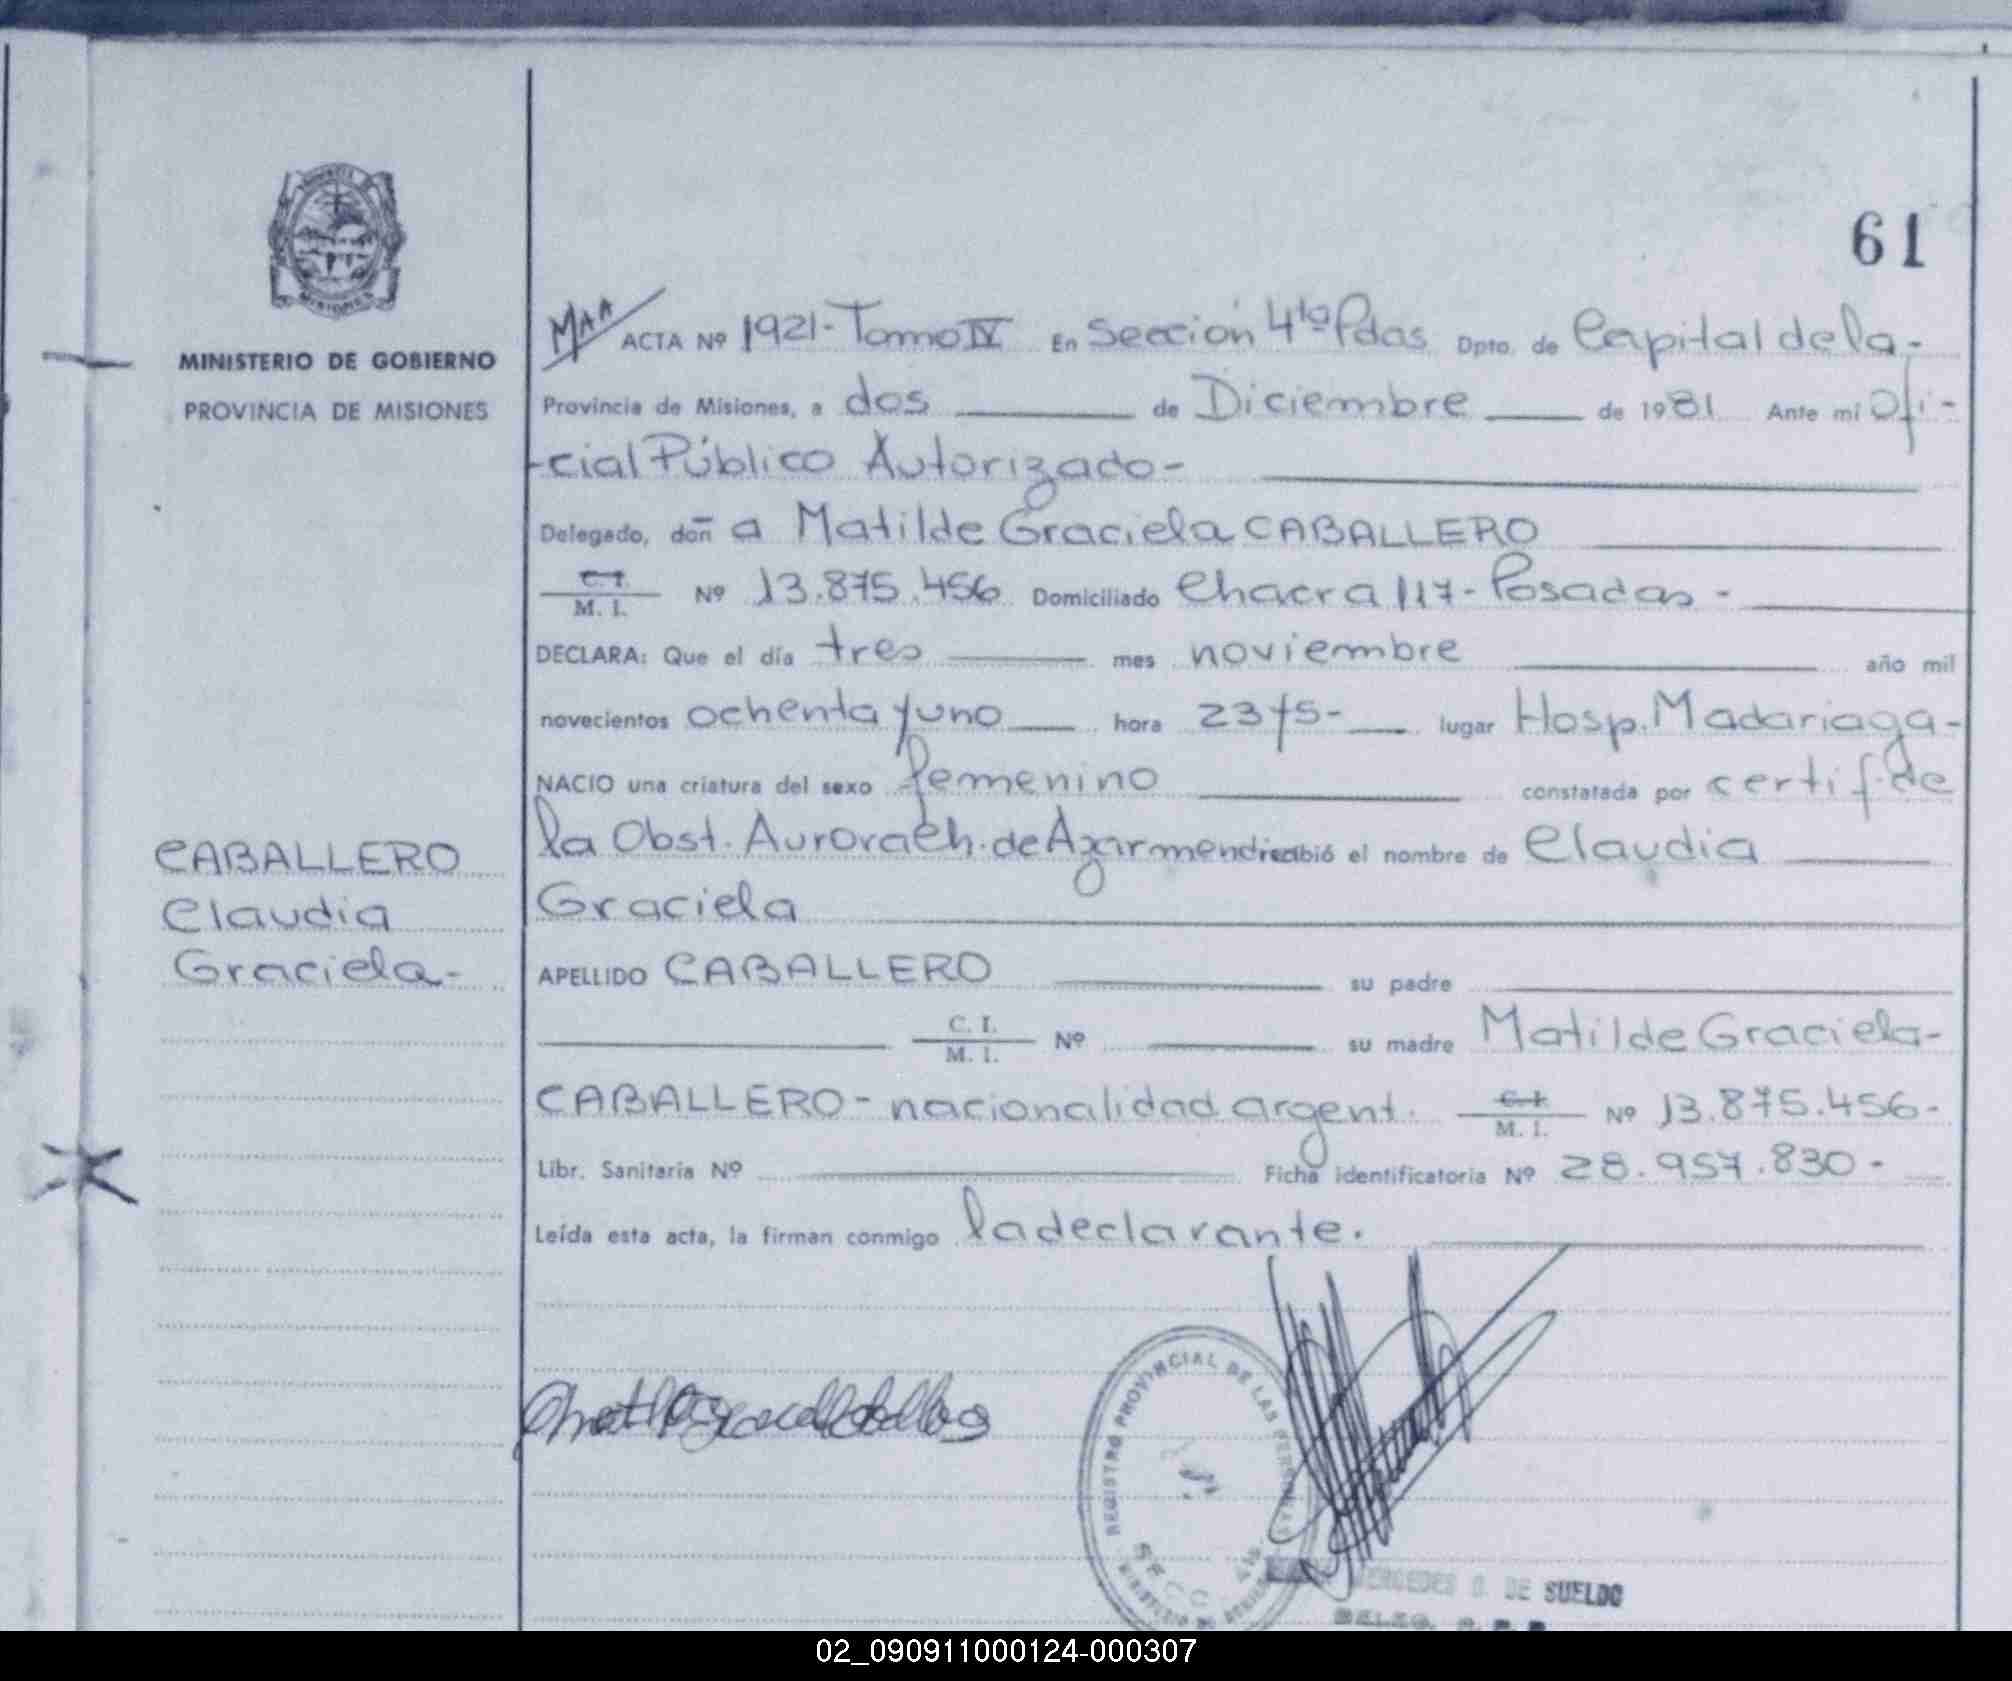 61
MINISTERIO DE GOBIERNO
PROVINCIA DE MISIONES
CABALLERO
Claudia
Graciela-
MAA ACTA Nº 1921-Tomo IV En Sección 4ta Pdas Dpto. de Capital de la-
Provincia de Misiones, a dos de Diciembre de 1981 Ante mi Ofi-
-cial Público Autorizado-
Delegado, doña Matilde Graciela CABALLERO
C.I. M. I. Nº 13.875.456 Domiciliado Chacra 117-Posadas-
DECLARA: Que el día tres mes noviembre año mil
novecientos ochenta y uno hora 23 y 5- lugar Hosp. Madariaga-
NACIO una criatura del sexo femenino constatada por certif. de
la Obst. Aurora Ch. de Azarmendi recibió el nombre de Claudia
Graciela
APELLIDO CABALLERO su padre
C. I. M. I. Nº su madre Matilde Graciela-
CABALLERO- nacionalidad argent. C.I. M. I. Nº 13.875.456-
Libr. Sanitaria Nº Ficha identificatoria Nº 28.957.830-
Leída esta acta, la firman conmigo la declarante.
REGISTRO PROVINCIAL DE LAS
MERCEDES DE SUELDO
02_090911000124-000307